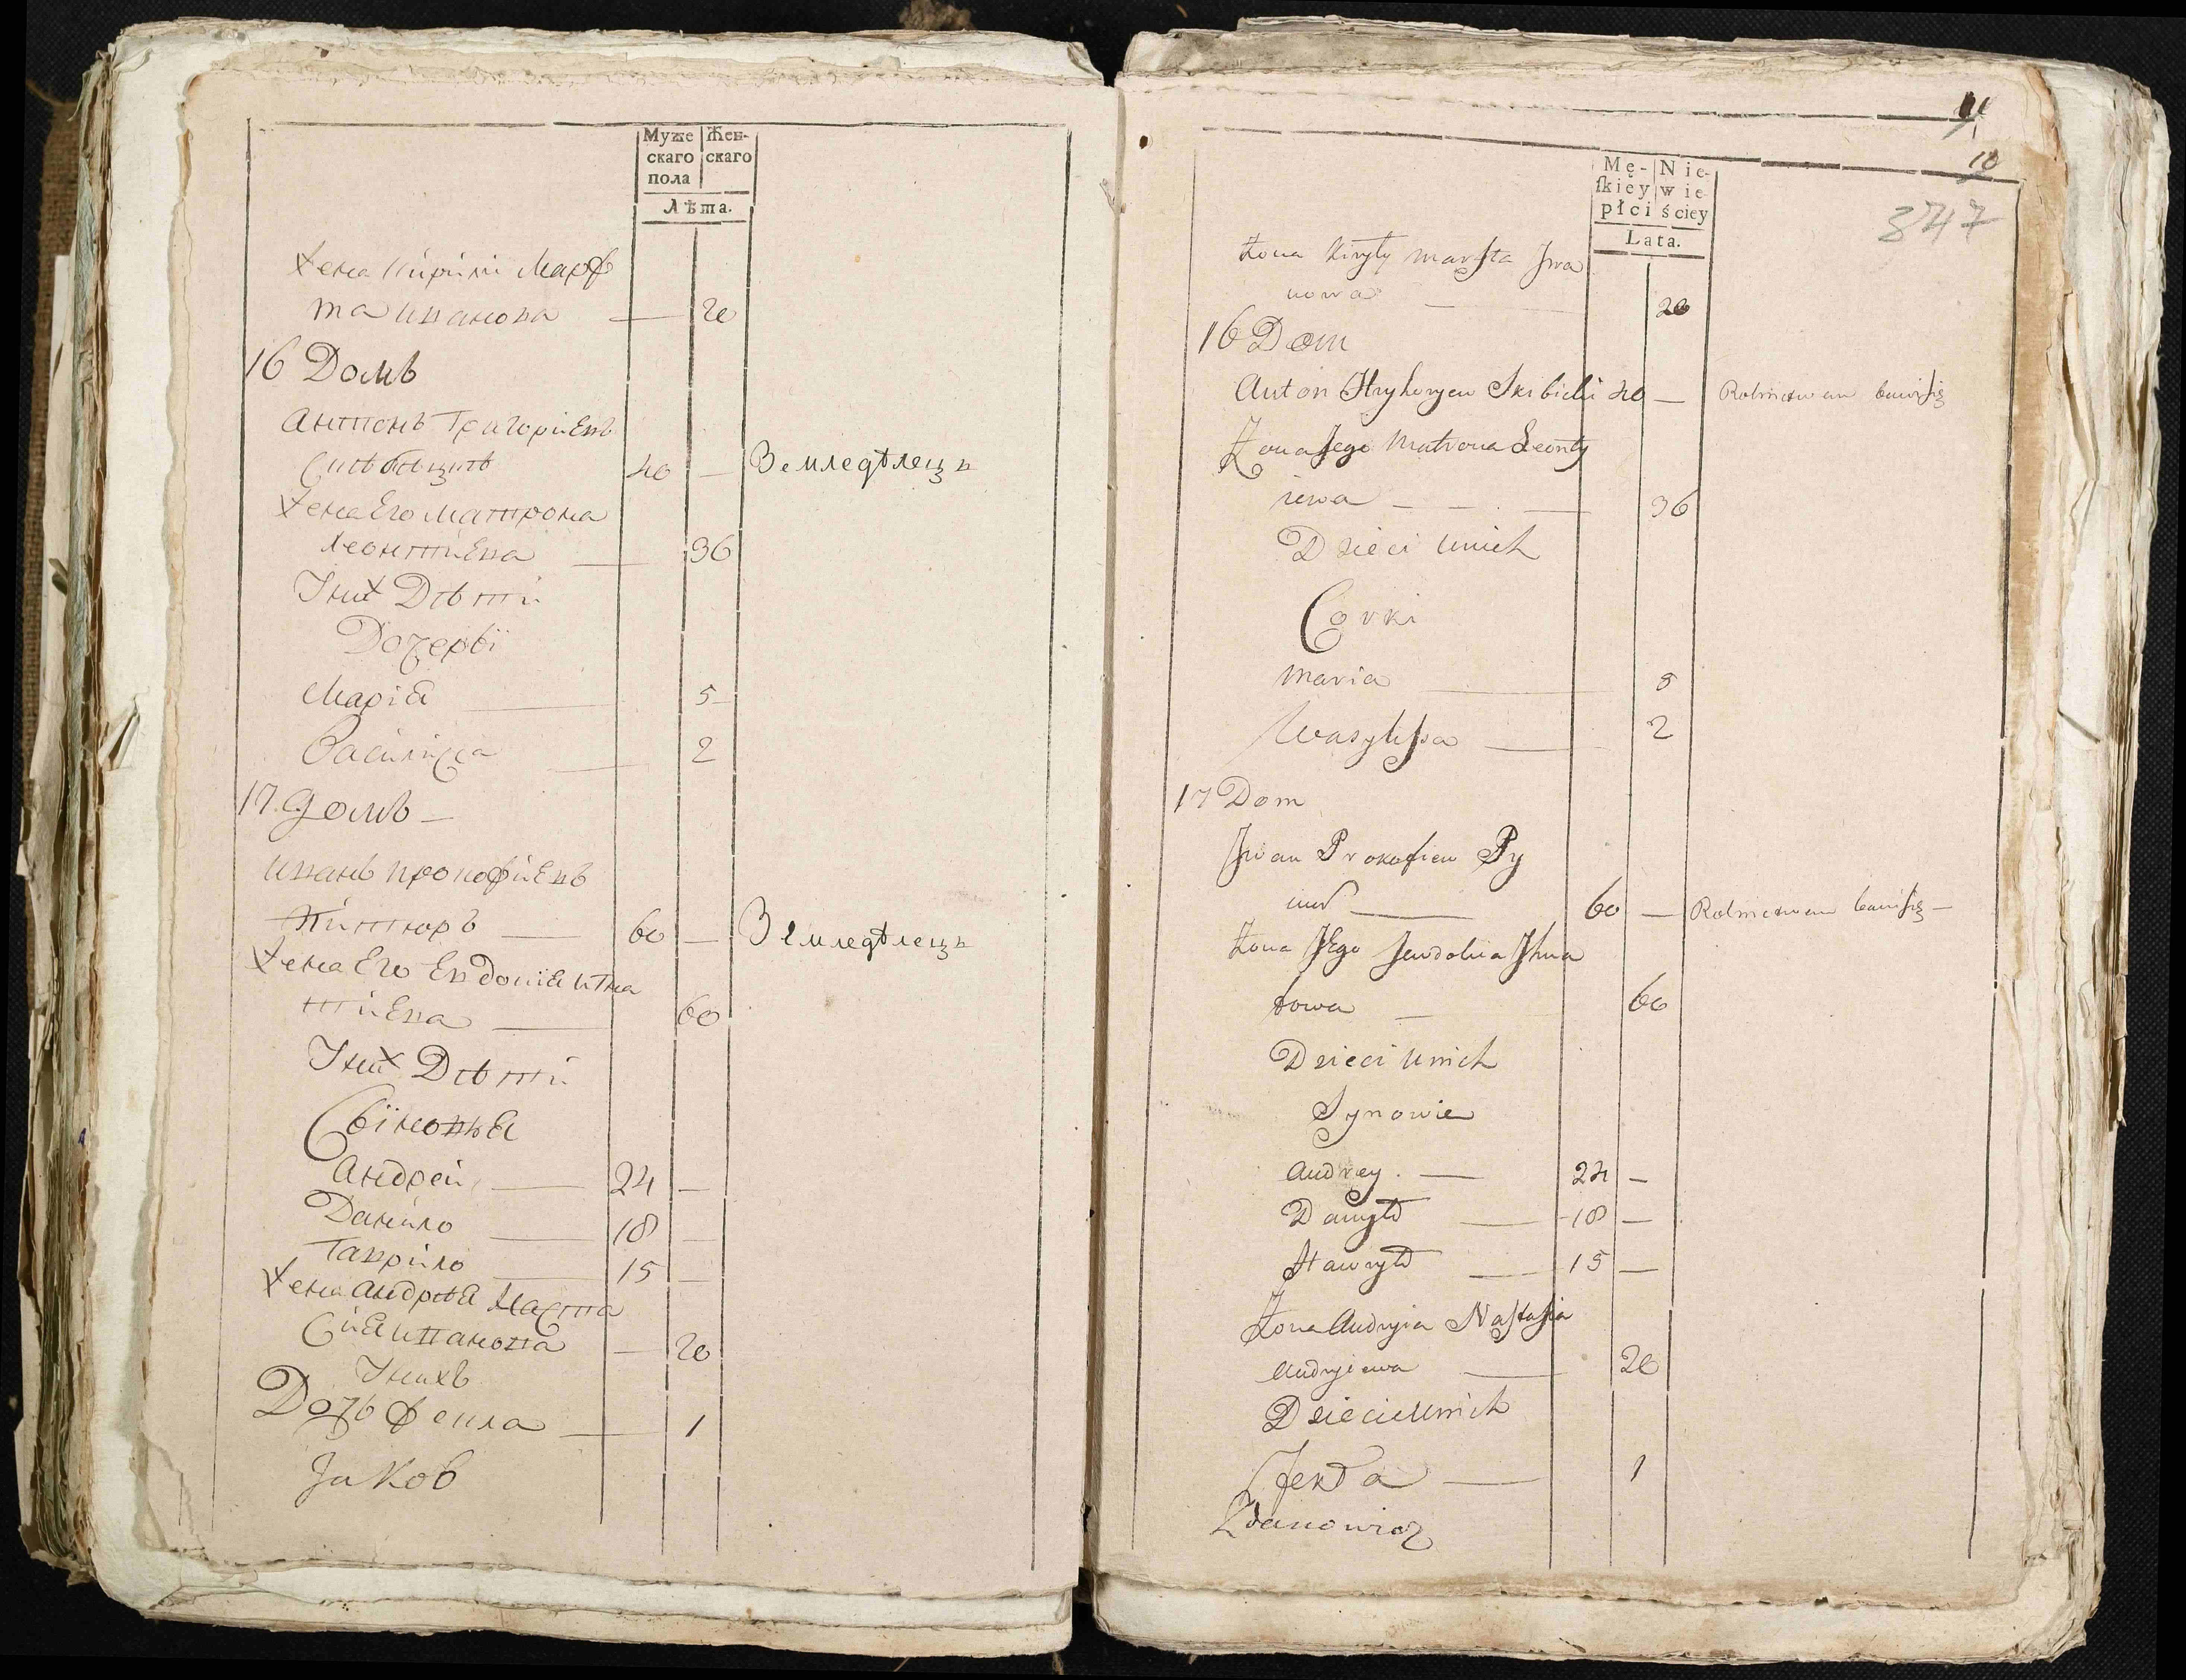 Муже Жен-
скаго скаго
пола
Лѣта.
Жена Кирили Марѳ
та Иванова — 20
16 Домъ
Антонъ Григориевъ
40 — Земледѣлецъ
Жена Его Матрона
Леонтиева — 36
У них Дѣти
Дочерѣ
Мариа — 5
Василиса — 2
17 Домъ —
Иванъ Прокофиевъ
60 — Земледѣлецъ
Жена Его Евдокиа Игна
тиева — 60
У них Дѣти
Сыновья
Андрей — 24 —
Данило — 18 —
Гаврило — 15 —
Жена Андрѣя Наста
сия — 20
У нихъ
Дочь Фекла — 1
Jakob
11
10
347
Mę- Nie-
ſkiey wie-
płci ściey
Lata.
Żona Kiryły Marfta Iwa
nowa — 20
16 Dom
Anton Hryhoryew Skibicki 40 — Rolnictwem bawi się
Żona Jego Matrona Leonty
iewa — 36
Dzieci u nich
Corki
Maria — 5
Wasylissa — 2
17 Dom
Iwan Prokofiew Py
60 — Rolnictwem bawi się —
Żona Jego Jewdokia Ihna
towa — 60
Dzieci u nich
Synowie
Andrey — 24 —
Danyło — 18 —
Hawryło — 15 —
Żona Andryia Nastasia
Andryiewa — 20
Dzieci u nich
Fekła — 1
Zdanowicz